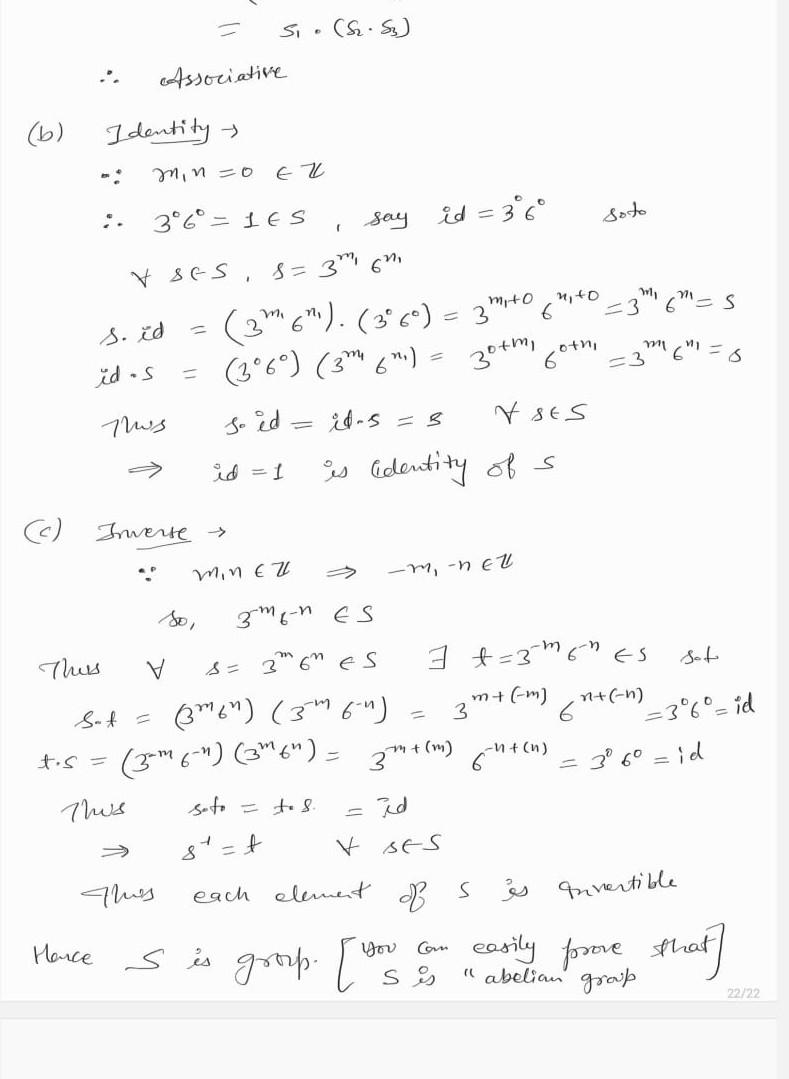 = s₁ · (s₂ · s₃)
∴ Associative
(b) Identity →
∵ m, n = 0 ∈ ℤ
∴ 3⁰6⁰ = 1 ∈ S , say id = 3⁰6⁰ s.t.
∀ s ∈ S , s = 3^m₁ 6^n₁
s. id = (3^m₁ 6^n₁) . (3⁰ 6⁰) = 3^(m₁+0) 6^(n₁+0) = 3^m₁ 6^n₁ = s
id . s = (3⁰6⁰) (3^m₁ 6^n₁) = 3^(0+m₁) 6^(0+n₁) = 3^m₁ 6^n₁ = s
Thus s. id = id . s = s ∀ s ∈ S
⇒ id = 1 is identity of S
(c) Inverse →
∵ m, n ∈ ℤ ⇒ -m, -n ∈ ℤ
So, 3^-m 6^-n ∈ S
Thus ∀ s = 3^m 6^n ∈ S ∃ t = 3^-m 6^-n ∈ S s.t
s.t = (3^m 6^n) (3^-m 6^-n) = 3^(m+(-m)) 6^(n+(-n)) = 3⁰6⁰ = id
t.s = (3^-m 6^-n) (3^m 6^n) = 3^(-m+(m)) 6^(-n+(n)) = 3⁰ 6⁰ = id
Thus s.t. = t. s. = id
⇒ s⁻¹ = t ∀ s ∈ S
Thus each element of S is invertible
Hence S is group. [you can easily prove that
S is "abelian group]
22/22